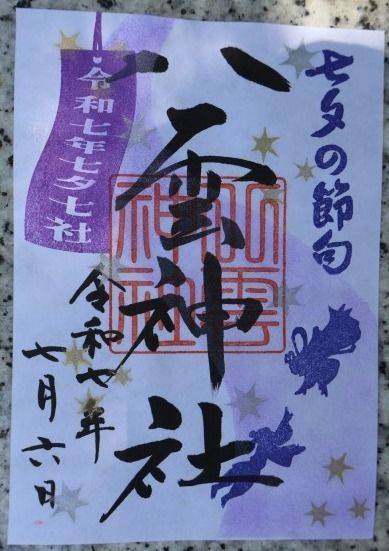 七夕の節句
八雲神社
八雲神社
令和七年
七月六日
令和七年七夕七社